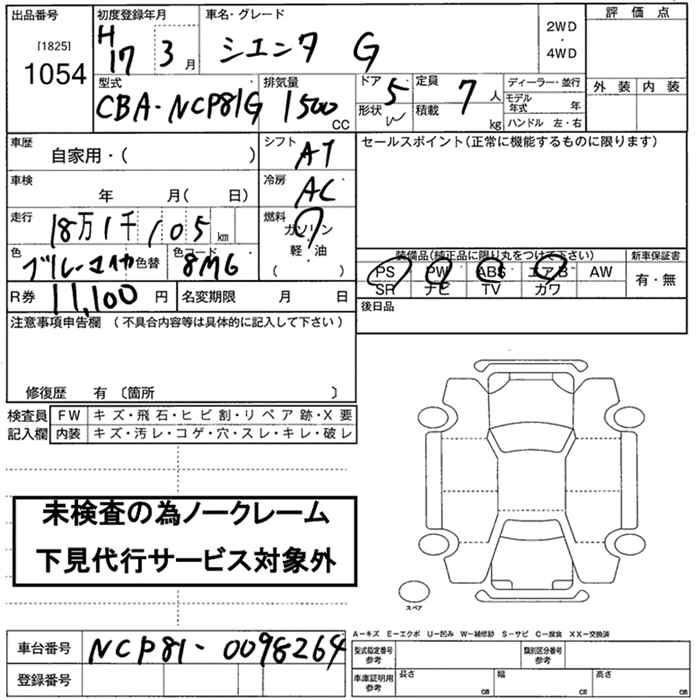 出品番号 初度登録年月 車名・グレード 評価点
[1825] H 2WD
1054 17 3月 シエンタ G ・
4WD
型式 排気量 ドア 5 定員 ディーラー・並行 外装 内装
CBA-NCP81G 1500 CC 形状 W 積載 7 人 モデル年式 年
kg ハンドル 左・右
車歴 自家用・( ) シフト AT セールスポイント(正常に機能するものに限ります)
車検 年 月( 日) 冷房 AC
走行 18万1千105 km 燃料 ガソリン
軽・油
( )
色 色替 色コード 8M6 装備品(純正品に限り丸をつけて下さい) 新車保証書
PS PW ABS エアB AW 有・無
SR ナビ TV カワ
R券 11,100 円 名変期限 月 日 後日品
注意事項申告欄 (不具合内容等は具体的に記入して下さい)
修復歴 有 〔箇所 〕
検査員 FW キズ・飛石・ヒビ割・リペア跡・X要
記入欄 内装 キズ・汚レ・コゲ・穴・スレ・キレ・破レ
未検査の為ノークレーム
下見代行サービス対象外
スペア
A-キズ E-エクボ U-凹み W-補修跡 S-サビ C-腐食 XX-交換済
車台番号 NCP81-0098264 型式指定番号 参考 類別区分番号 参考
登録番号 車庫証明用 参考 長さ cm 幅 cm 高さ cm